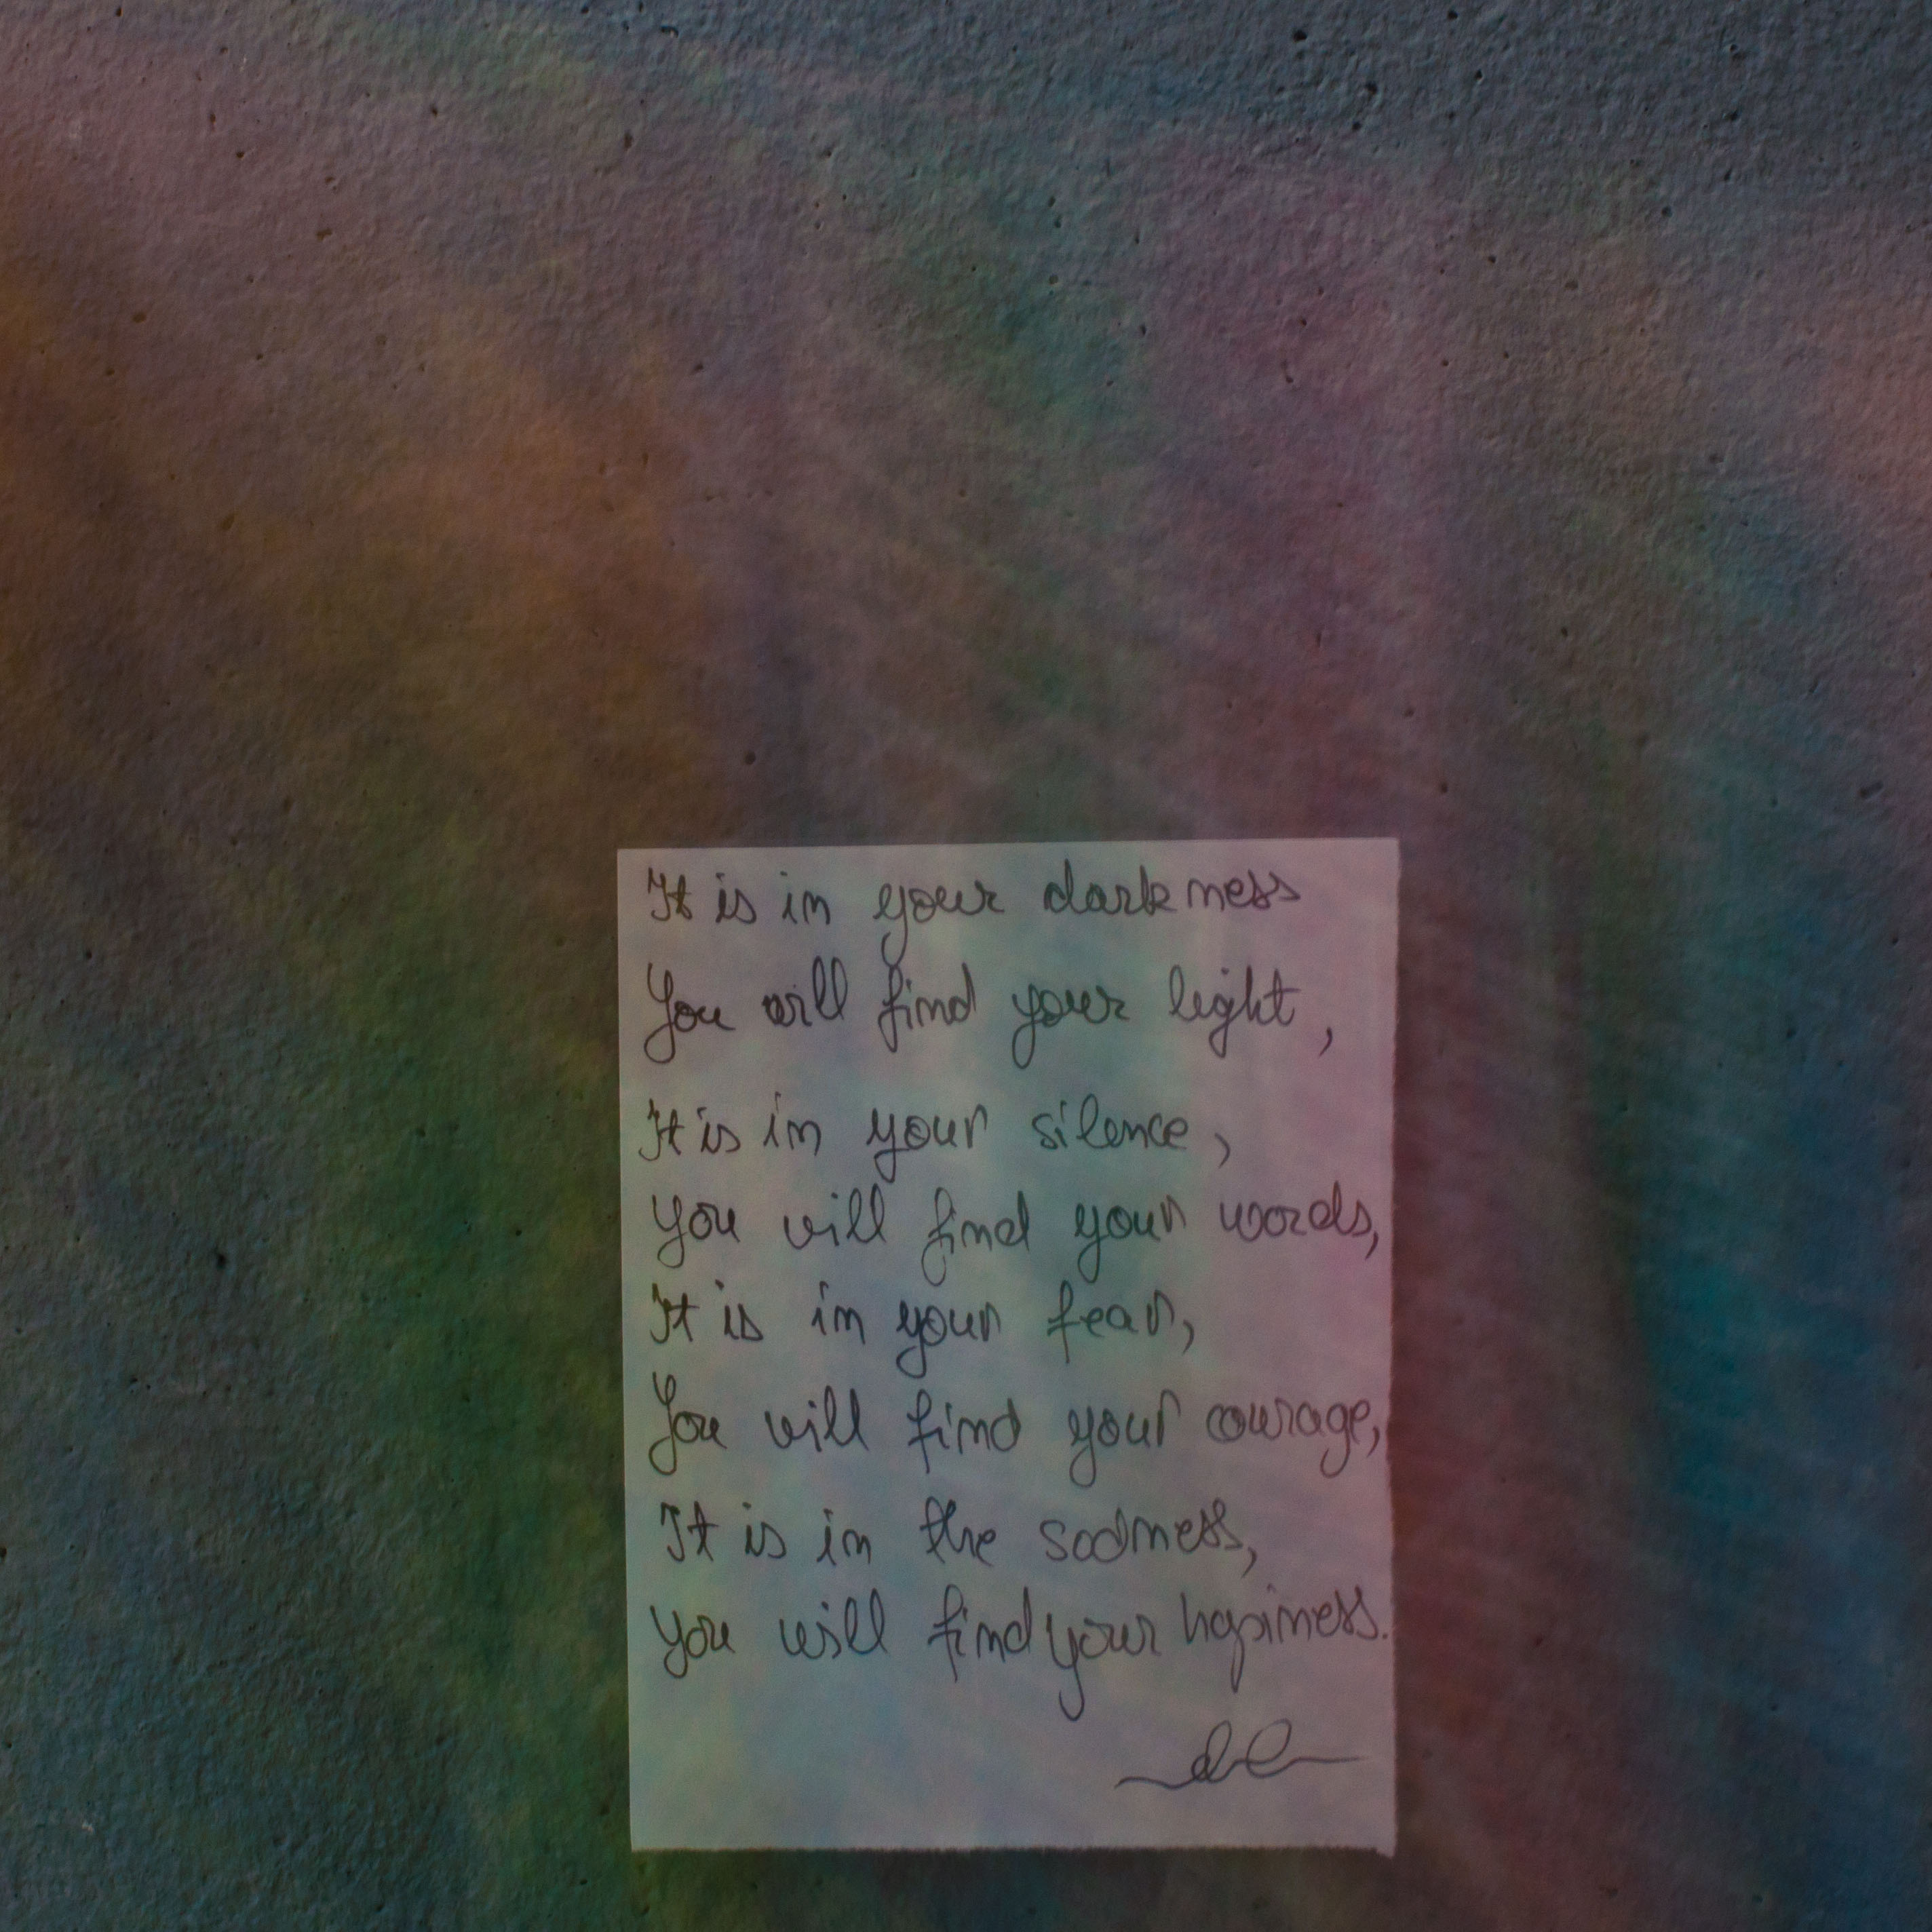 It is in your darkness
You will find your light,
It is in your silence,
You will find your words,
It is in your fear,
You will find your courage,
It is in the sadness,
You will find your hapiness.